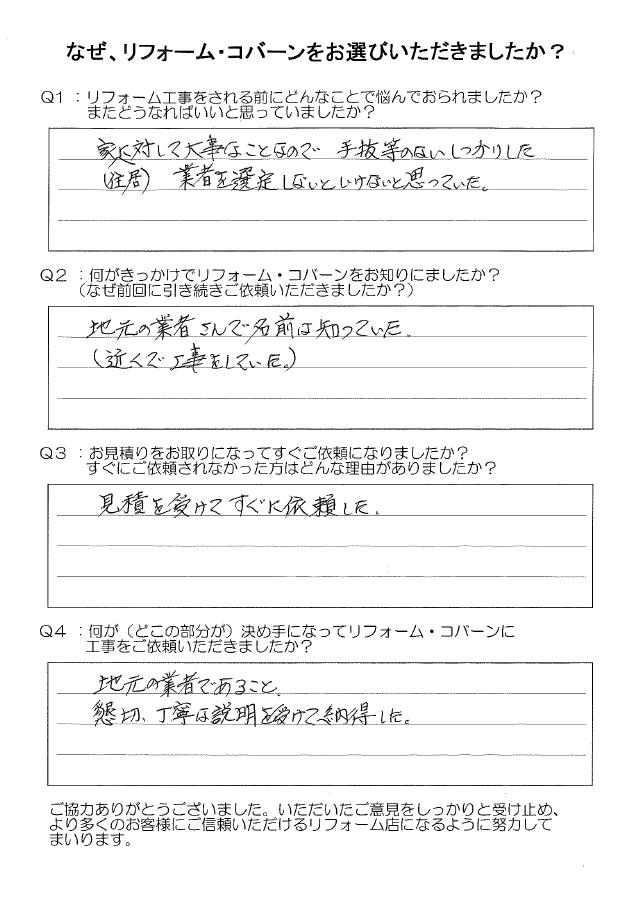 なぜ、リフォーム・コバーンをお選びいただきましたか？
Q1：リフォーム工事をされる前にどんなことで悩んでおられましたか？
またどうなればいいと思っていましたか？
家に対して大事なことなので 手抜等のないしっかりした
(住居) 業者を選定しないといけないと思っていた。
Q2：何がきっかけでリフォーム・コバーンをお知りにましたか？
（なぜ前回に引き続きご依頼いただきましたか？）
地元の業者さんで名前は知っていた。
(近くで工事をしていた。)
Q3：お見積りをお取りになってすぐご依頼になりましたか？
すぐにご依頼されなかった方はどんな理由がありましたか？
見積を受けてすぐに依頼した。
Q4：何が（どこの部分が）決め手になってリフォーム・コバーンに
工事をご依頼いただきましたか？
地元の業者であること。
懇切、丁寧な説明を受けて納得した。
ご協力ありがとうございました。いただいたご意見をしっかりと受け止め、
より多くのお客様にご信頼いただけるリフォーム店になるように努力して
まいります。